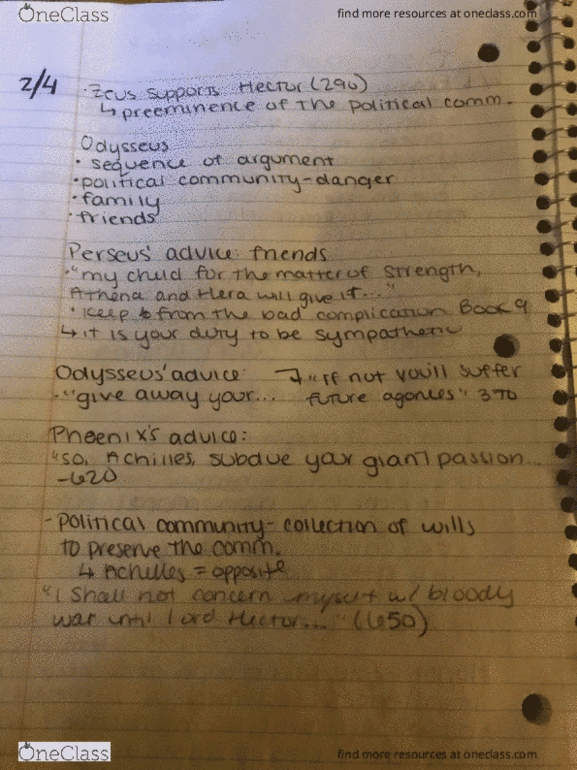 OneClass
find more resources at oneclass.com
2/4
· Zeus supports Hector (290)
↳ preeminence of the political comm.
Odysseus
· sequence of argument
· political community-danger
· family
· friends
Perseus' advice: friends
· "my child for the matter of strength,
Athena and Hera will give it..."
· "Keep from the bad complication Book 9
↳ it is your duty to be sympathetic
Odysseus' advice
→ "If not you'll suffer
· "give away your...
future agonies" 370
Phoenix's advice:
"so, Achilles, subdue your giant passion...
-620
- political community - collection of wills
to preserve the comm.
↳ Achilles = opposite
"I shall not concern myself w/ bloody
war until lord Hector..." (650)
OneClass
find more resources at oneclass.com